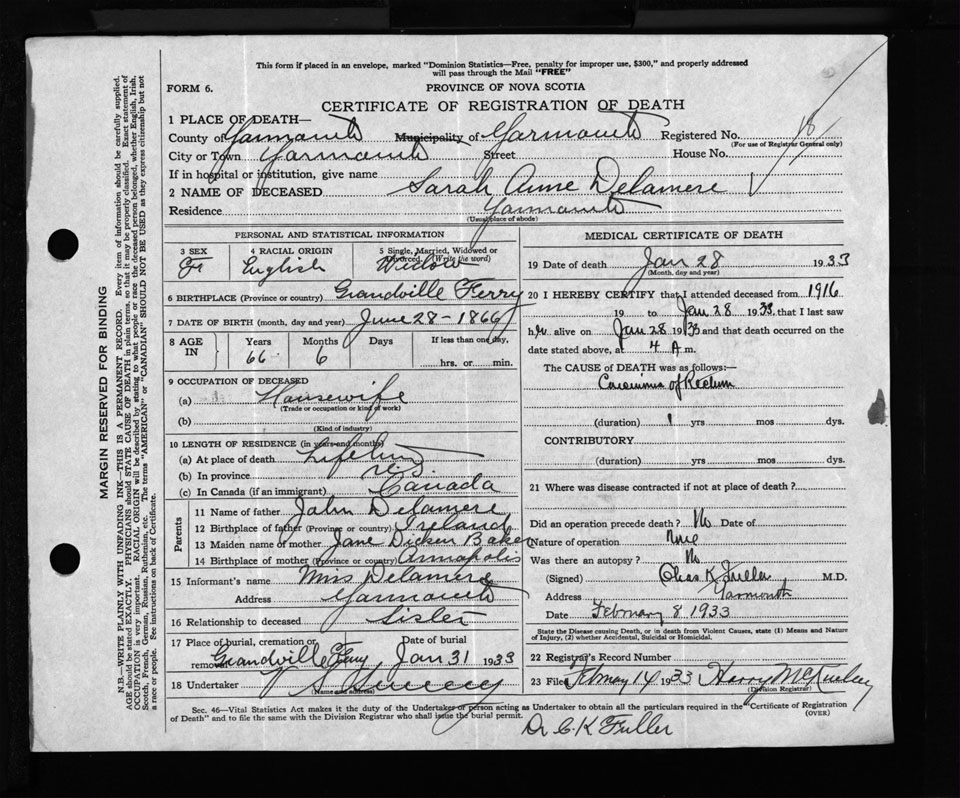 This form if placed in an envelope, marked "Dominion Statistics—Free, penalty for improper use, $300," and properly addressed
will pass through the Mail "FREE"
FORM 6.
PROVINCE OF NOVA SCOTIA
CERTIFICATE OF REGISTRATION OF DEATH
1 PLACE OF DEATH—
County of Yarmouth Municipality of Yarmouth Registered No. 18
(For use of Registrar General only)
City or Town Yarmouth Street House No.
If in hospital or institution, give name
2 NAME OF DECEASED Sarah Anne Delamere
Residence Yarmouth
(Usual place of abode)
PERSONAL AND STATISTICAL INFORMATION
3 SEX 4 RACIAL ORIGIN 5 Single, Married, Widowed or Divorced. (Write the word)
F. English Widow
6 BIRTHPLACE (Province or country) Grandville Ferry
7 DATE OF BIRTH (month, day and year) June 28-1866
8 AGE IN Years Months Days If less than one day,
66 6 hrs. or min.
9 OCCUPATION OF DECEASED
(a) Housewife
(Trade or occupation or kind of work)
(b)
(Kind of industry)
10 LENGTH OF RESIDENCE (in years and months)
(a) At place of death Lifetime
(b) In province N.S.
(c) In Canada (if an immigrant) Canada
Parents
11 Name of father John Delamere
12 Birthplace of father (Province or country) Ireland
13 Maiden name of mother Jane Dicken Baker
14 Birthplace of mother (Province or country) Annapolis
15 Informant's name Miss Delamere
Address Yarmouth
16 Relationship to deceased Sister
17 Place of burial, cremation or removal Date of burial
Grandville Ferry Jan 31 1933
18 Undertaker
(Name and address)
MEDICAL CERTIFICATE OF DEATH
19 Date of death Jan 28 1933
(Month, day and year)
20 I HEREBY CERTIFY that I attended deceased from 1916
19 to Jan 28 1933, that I last saw
her alive on Jan 28 1933 and that death occurred on
date stated above, at 4 A m.
The CAUSE OF DEATH was as follows:—
Carcinoma of Rectum
(duration) 1 yrs mos dys.
CONTRIBUTORY
(duration) yrs mos dys.
21 Where was disease contracted if not at place of death?
Did an operation precede death? No Date of
Nature of operation None
Was there an autopsy? No
(Signed) Chas K Fuller M.D.
Address Yarmouth
Date February 8 1933
State the Disease causing Death, or in death from Violent Causes, state (1) Means and Nature
of Injury, (2) whether Accidental, Suicidal or Homicidal.
22 Registrar's Record Number
23 Filed February 14 1933 Harry
(Division Registrar)
Sec. 46—Vital Statistics Act makes it duty of the Undertaker or person acting as Undertaker to obtain all the particulars required in the "Certificate of Registration
of Death" and to file the same with the Division Registrar who shall issue the burial permit.
(OVER)
Dr C. K Fuller
MARGIN RESERVED FOR BINDING
N.B.—WRITE PLAINLY WITH UNFADING INK—THIS IS A PERMANENT RECORD. Every item of information should be carefully supplied.
AGE should be stated EXACTLY. PHYSICIANS should STATE CAUSE OF DEATH in plain terms, so that it may be properly classified. Exact statement of
OCCUPATION is very important. RACIAL ORIGIN will be described by stating to what people or race the deceased person belonged, whether English, Irish,
Scotch, French, German, Russian, Ruthenian, etc. The terms "AMERICAN" or "CANADIAN" SHOULD NOT BE USED as they express citizenship but not
a race or people. See instructions on back of Certificate.